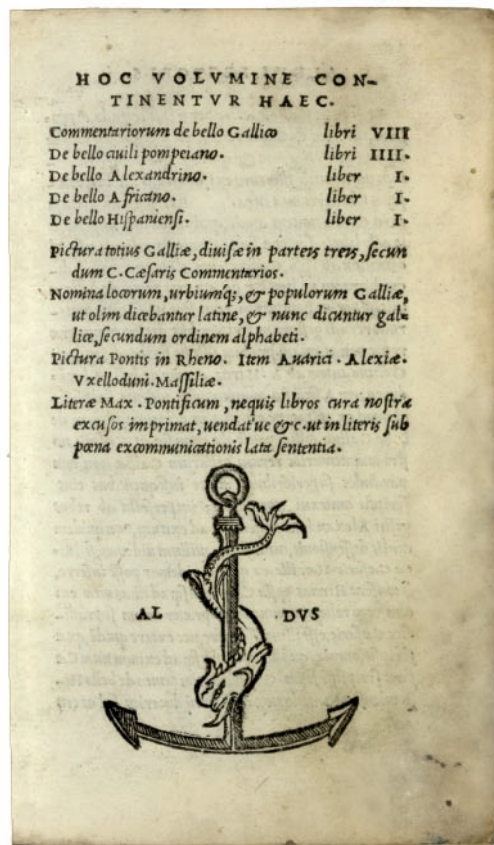 HOC VOLVMINE CON-
TINENTVR HAEC.
Commentariorum de bello Gallico libri VIII
De bello ciuili pompeiano. libri IIII.
De bello Alexandrino. liber I.
De bello Africano. liber I.
De bello Hiſpanienſi. liber I.
Pictura totius Galliæ, diuiſæ in parteis treis, ſecun
dum C. Cæſaris Commentarios.
Nomina locorum, urbiumq́;, & populorum Galliæ,
ut olim dicebantur latine, & nunc dicuntur gal-
lice, ſecundum ordinem alphabeti.
Pictura Pontis in Rheno. Item Auarici. Alexiæ.
Vxelloduni. Maſſiliæ.
Literæ Max. Pontificum, nequis libros cura noſtra
excuſos imprimat, uendat'ue &c. ut in literis ſub
pœna excommunicationis latæ ſententia.
AL DVS